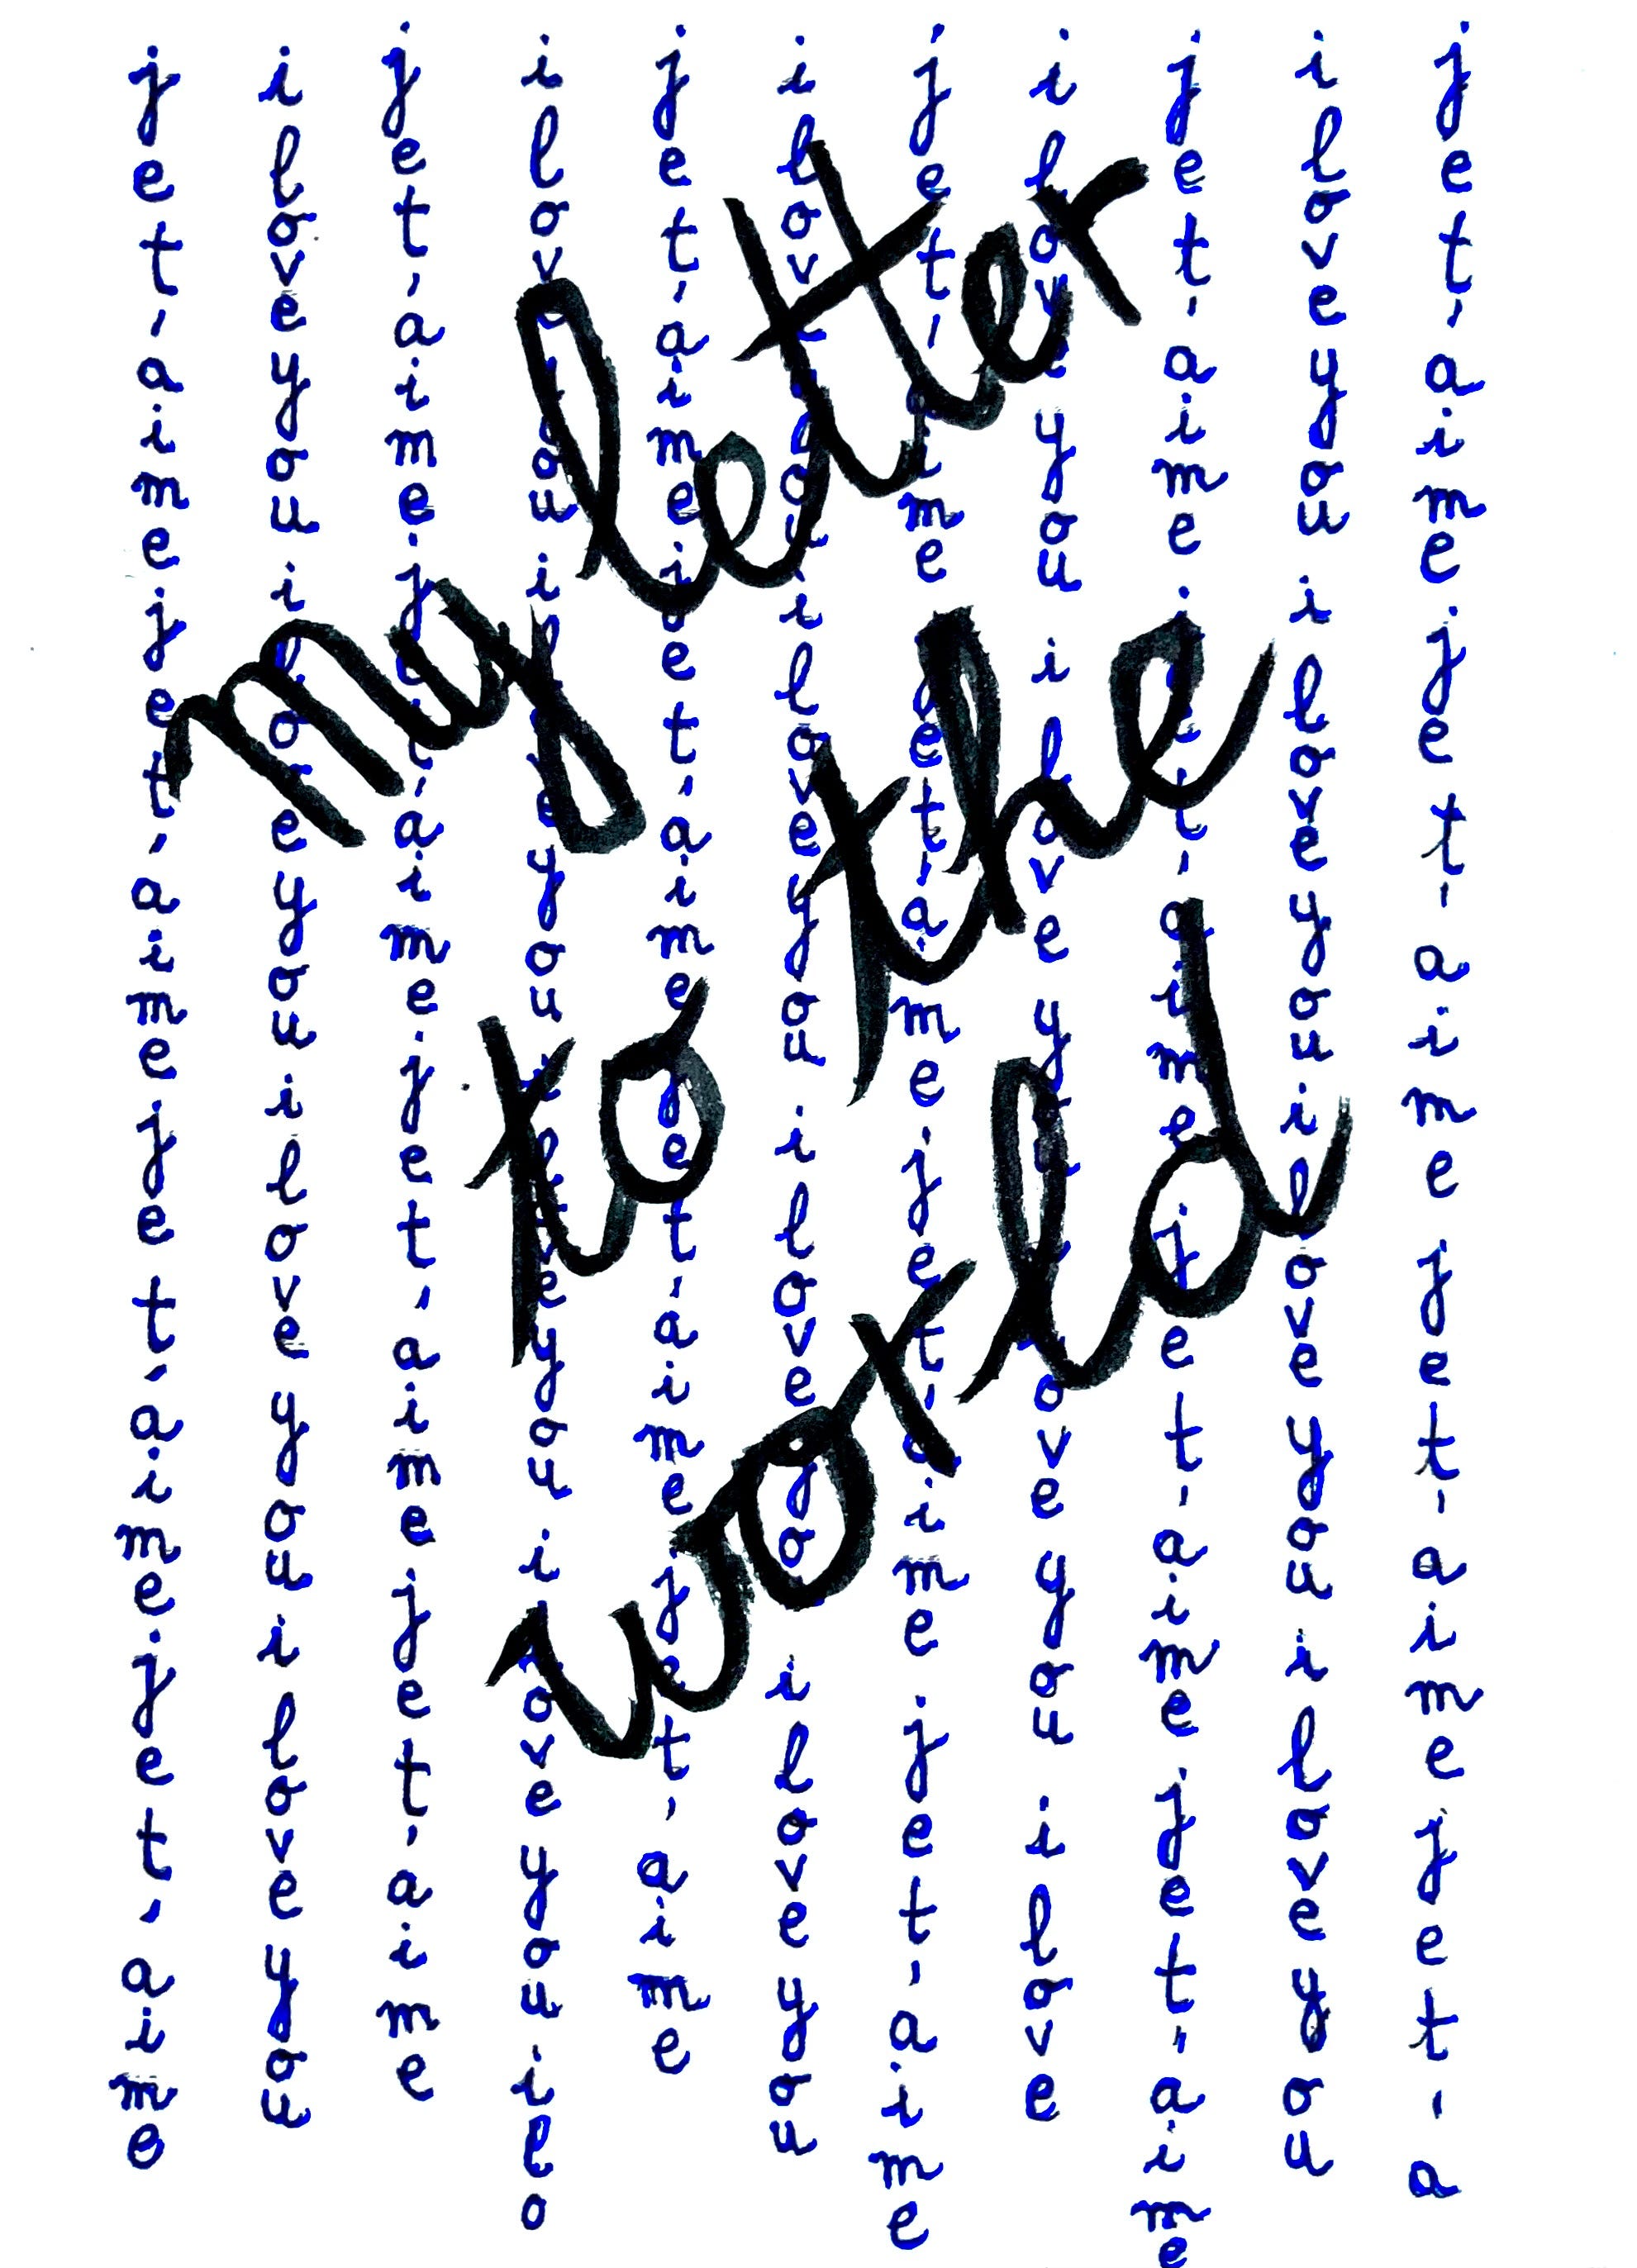 my letter
to the
world
je t'aime je t'aime je t'aime je t'aime
i love you i love you i love you i love you
je t'aime je t'aime je t'aime je t'aime
i love you i love you i love you i love you i lo
je t'aime je t'aime je t'aime je t'aime
i love you i love you i love you i love you
je t'aime je t'aime je t'aime je t'aime
i love you i love you i love you i love
je t'aime je t'aime je t'aime je t'aime
i love you i love you i love you i love you
je t'aime je t'aime je t'aime je t'a